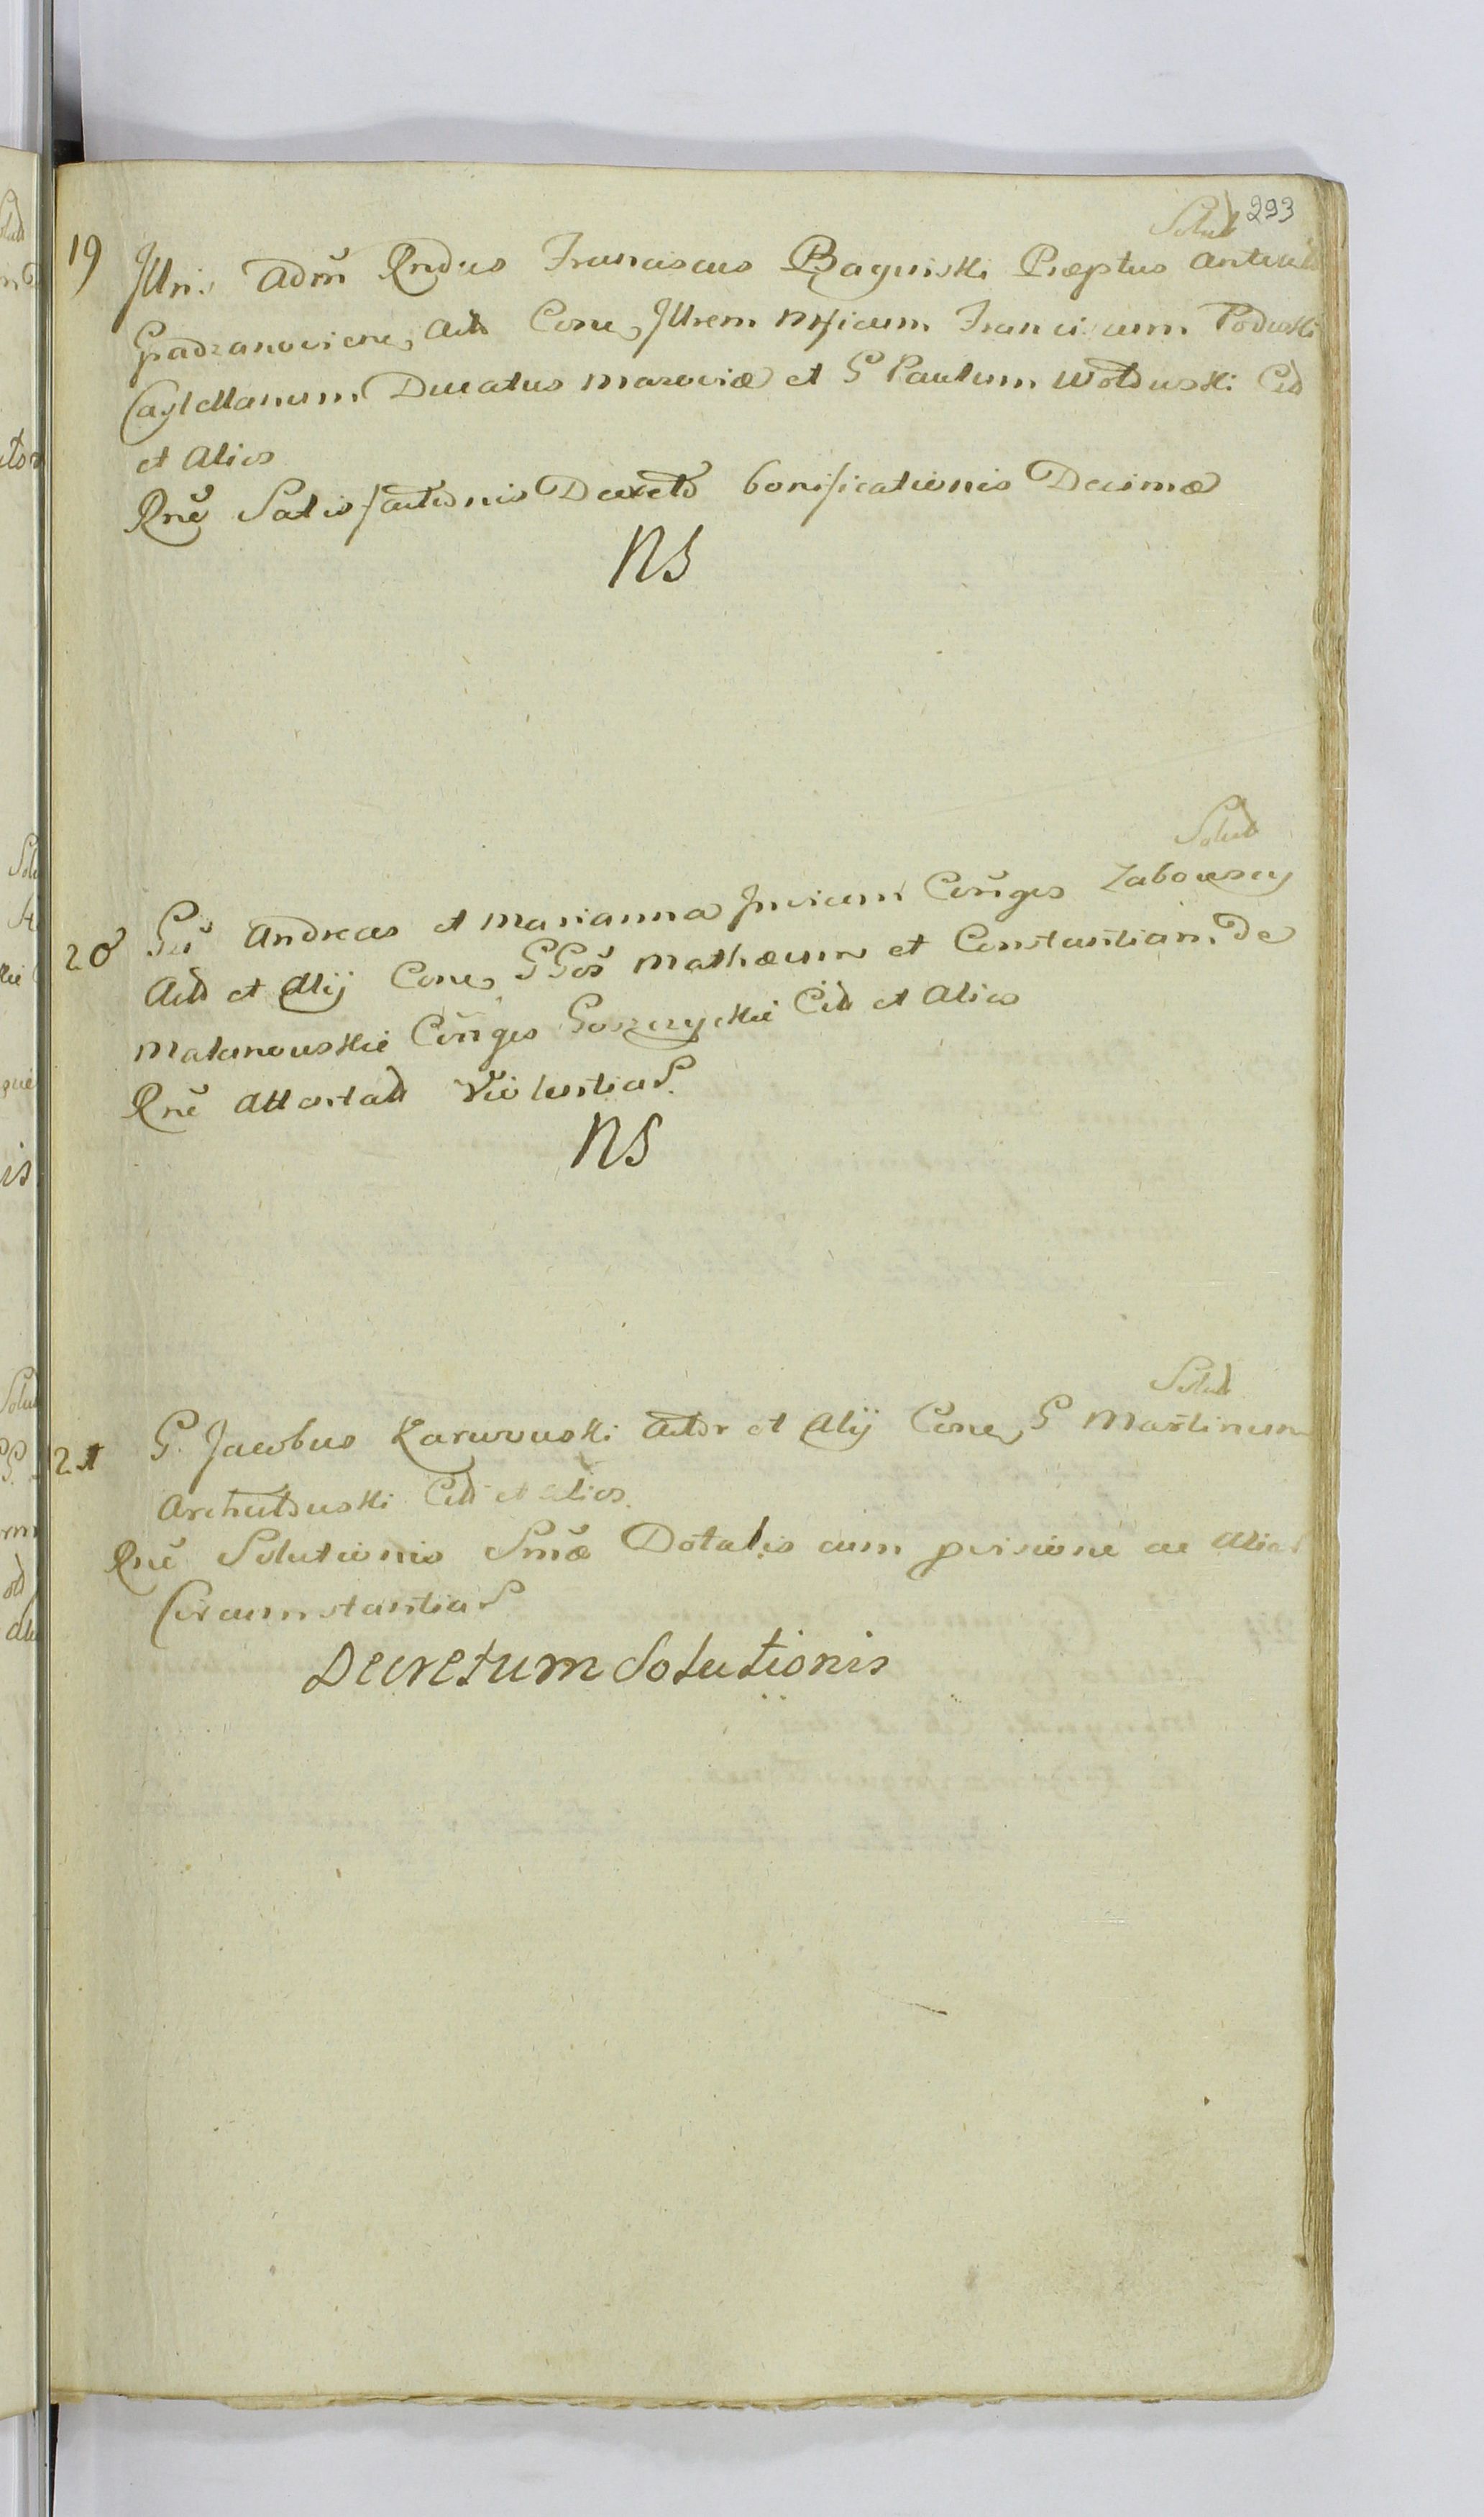 293
Solut
19 Jllris Adm̃ Rndus Franciscus Baginski Præptus
Gradzanovien, Act Cone, Jllrem Mficum Franciscum Podoski
Castellanum Ducatus Mazoviæ et G Paulum Wolduski Cit
et Alios
Rnẽ Satisfactionis Decreto bonificationis Decimæ
NS
Solut
20 Gsi Andreas et Marianna Invicem Conĩges Zaboruscy
Act et Alij Cone, GGos Mathæum et Constantiam De
Conĩges Goszczyckie Cit et Alios
Rnẽ Attentat Violentiar
NS
Solut
21 G. Jacobus Karwowski Actor et Alij Cone, G Martinum
Cit et Alios
Rnẽ Solutionis Sm̃æ Dotalis cum pvisione ac Aliar
Circumstantiar
Decretum Solutionis